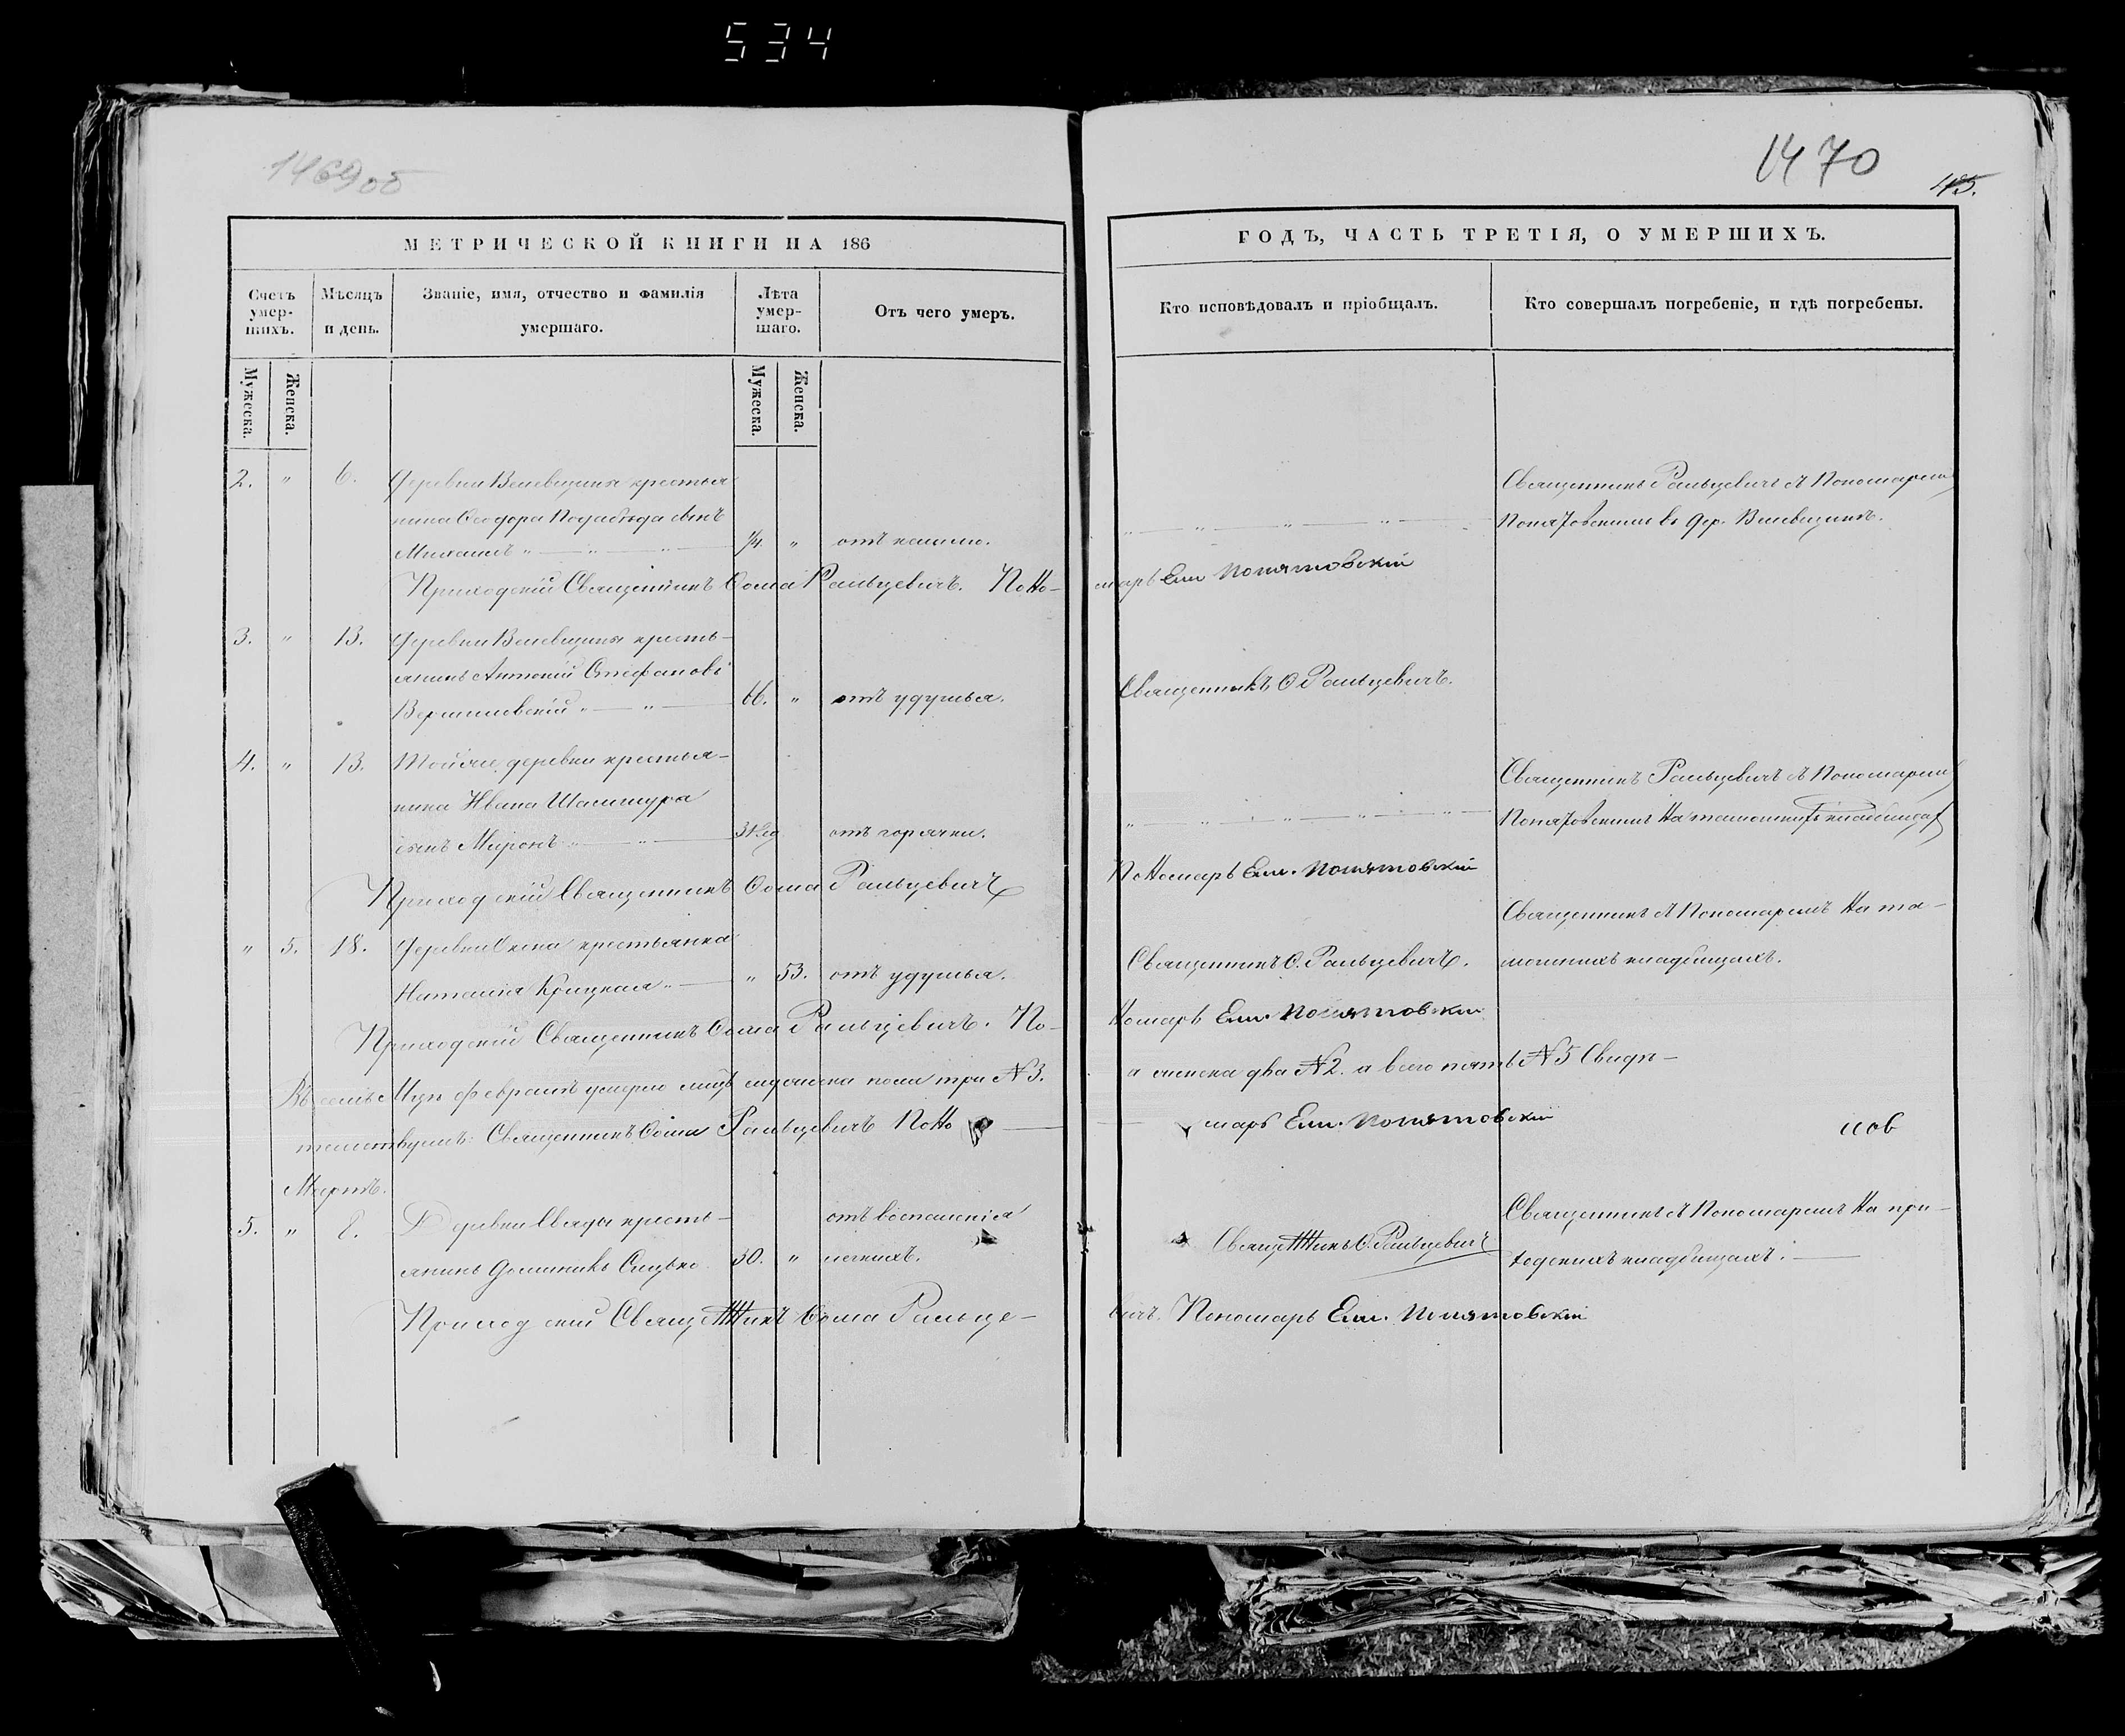 534
1469об
1470
45.
МЕТРИЧЕСКОЙ КНИГИ НА 186
ГОДЪ, ЧАСТЬ ТРЕТІЯ, О УМЕРШИХЪ.
Счетъ умер-шихъ.
Мѣсяцъ и день.
Званіе, имя, отчество и фамилія умершаго.
Лѣта умер-шаго.
Отъ чего умеръ.
Кто исповѣдовалъ и пріобщалъ.
Кто совершалъ погребеніе, и гдѣ погребены.
Мужеска.
Женска.
Мужеска.
Женска.
2. " 6. Деревни Велевщины крестья
нина Ѳеодора сынъ
Михаилъ " " 1/4. " отъ
Священникъ Ральцевичъ съ Пономаремъ
Понятовскимъ въ дер. Велевщинѣ.
Приходскій Священникъ Ѳома Ральцевичъ. Поно-
марь Ем. Понятовскій
3. " 13. Деревни Велевщины кресть-
янинъ Антоній Стефановъ
" " 66. " отъ удушья.
Священникъ Ѳ. Ральцевичъ.
4. " 13. Тойже деревни крестья-
нина Ивана
сынъ Миронъ " отъ горячки.
Священникъ Ральцевичъ съ Пономаремъ
Понятовскимъ на тамошнихъ кладбищах
Приходскій Священникъ Ѳома Ральцевичъ
Пономарь Ем. Понятовскій
" 5. 18. Деревни крестьянка
Наталія Крицкая " " 53. отъ удушья.
Священникъ Ѳ. Ральцевичъ.
Священникъ съ Пономаремъ на та-
мошнихъ кладбищахъ.
Приходскій Священникъ Ѳома Ральцевичъ. По-
номарь Ем. Понятовскій
Въ семъ Мцѣ февралѣ умерло мужеска пола три №3.
а женска два №2. а всего пять №5 Свидѣ-
тельствуемъ: Священникъ Ѳома Ральцевичъ Поно
марь Ем. Понятовскій
Мартъ.
5. " Деревни Свяды кресть-
янинъ Доминикъ 30. " отъ воспаленія
легкихъ.
Священникъ Ѳ. Ральцевичъ
Священникъ съ Пономаремъ на при-
ходскихъ кладбищахъ.
Приходскій Священникъ Ѳома Ральце-
вичъ. Пономарь Ем. Понятовскій